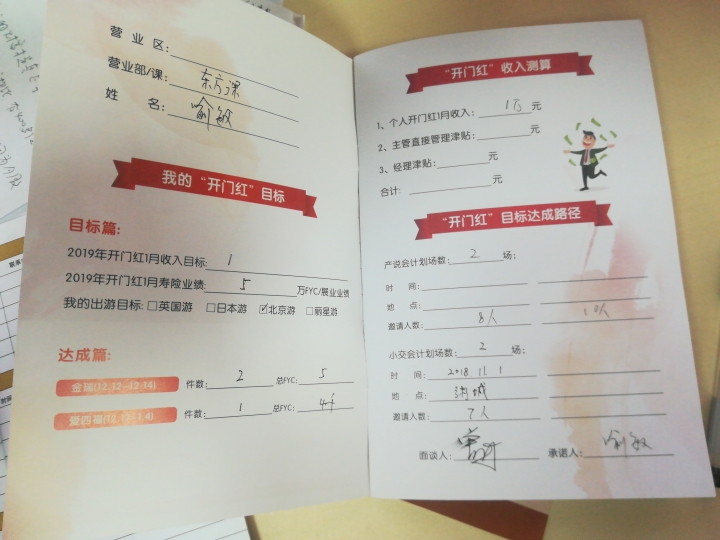 营 业 区：
营业部/课：东方课
姓 名：喻敏
我的“开门红”目标
目标篇：
2019年开门红1月收入目标：1
2019年开门红1月寿险业绩：5 万FYC/展业业绩
我的出游目标：□英国游 □日本游 ☑北京游 □丽星游
达成篇：
金瑞(12.12-12.14) 件数：2 总FYC：5
件数：1 总FYC：4千
“开门红”收入测算
1、个人开门红1月收入：1万元
2、主管直接管理津贴：元
3、经理津贴：元
合计：元
“开门红”目标达成路径
产说会计划场数：2 场；
时 间：
地 点：
邀请人数：8人 10人
小交会计划场数：2 场；
时 间：2018.11.1
地 点：
邀请人数：7人
面谈人：
承诺人：喻敏